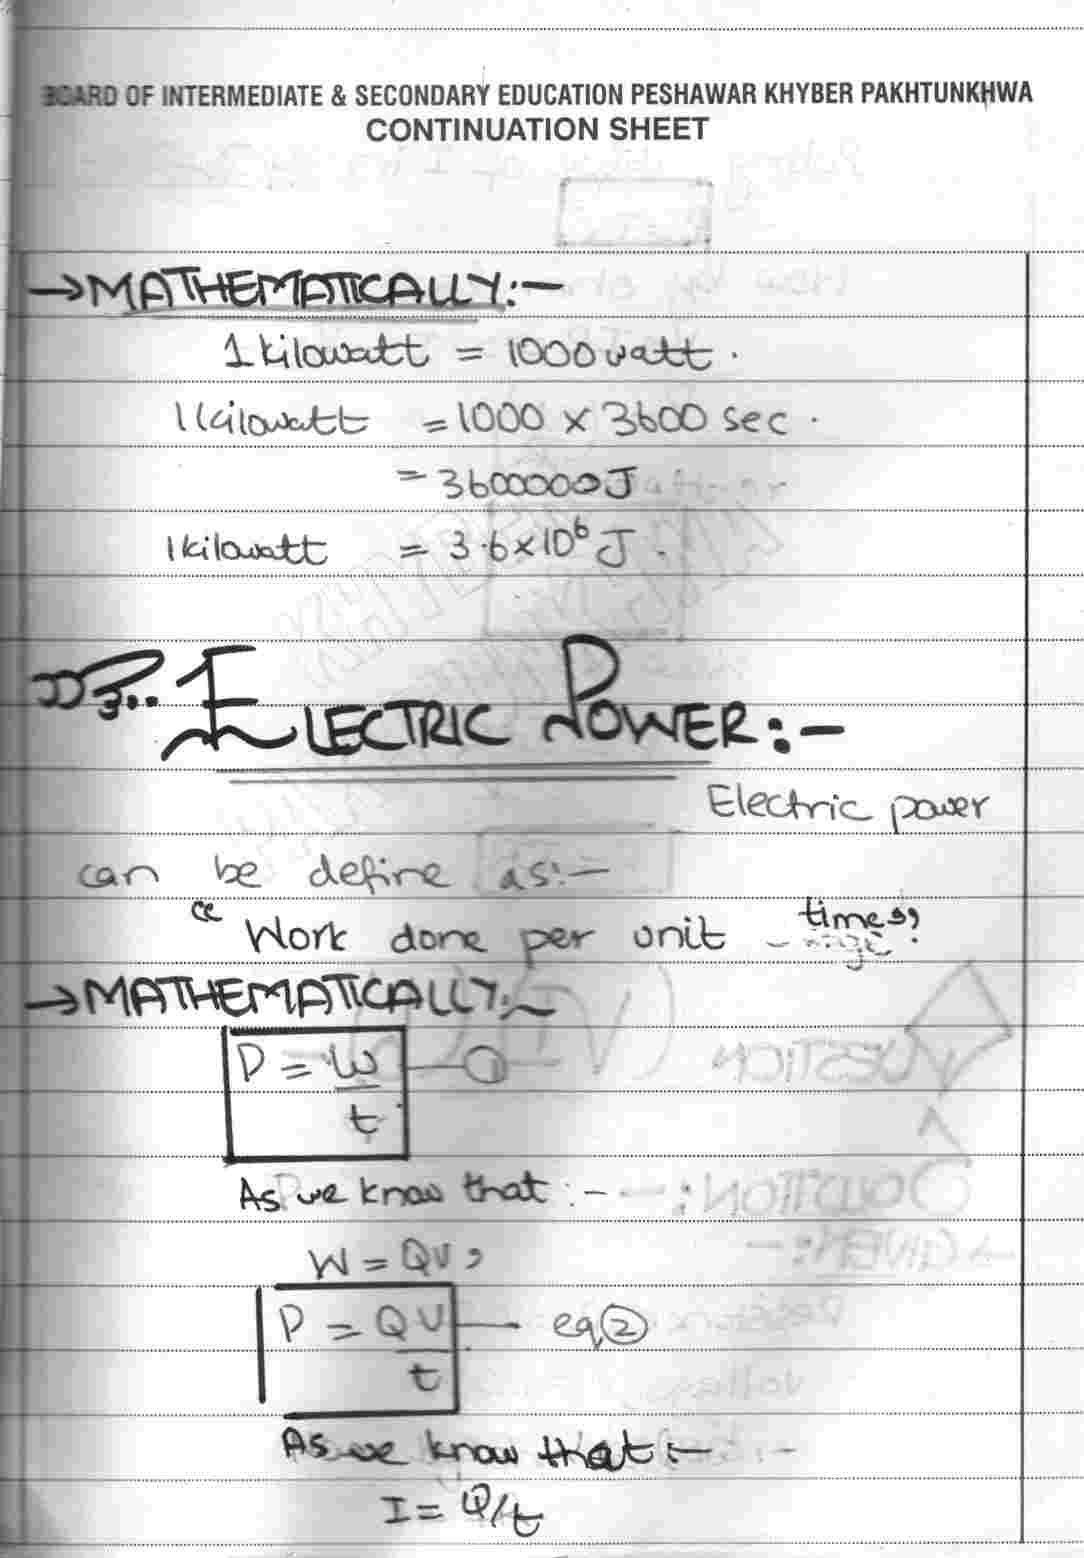 BOARD OF INTERMEDIATE & SECONDARY EDUCATION PESHAWAR KHYBER PAKHTUNKHWA
CONTINUATION SHEET
→MATHEMATICALLY:-
1 kilowatt = 1000 watt.
1 kilowatt = 1000 × 3600 sec.
= 3600000 J
1 kilowatt = 3.6×10⁶ J.
ELECTRIC POWER:-
Electric power
can be define as:-
“ Work done per unit time”
→MATHEMATICALLY:-
P = W/t
As we know that :-
W = QV,
P = QV/t — eq(2)
As we know that :-
I = Q/t